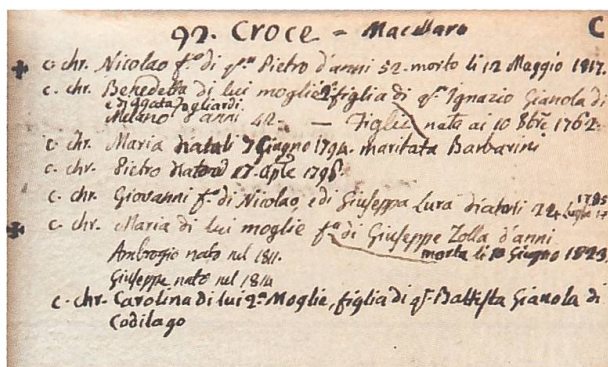 92. Croce = Macellaro C
✚ c. chr. Nicolao f.º di q.m Pietro d'anni 52. morto li 12 Maggio 1817.
c. chr. Benedetta di lui moglie 2ª figlia di q.m Ignazio Gianola di
e di Agata Fogliardi.
Melano d'anni 42. — Figlie nata ai 10 8bre 1762.
c. chr. Maria nata li 7 Giugno 1794. maritata Barbarini
c. chr. Pietro nato 17. Aple 1798.
c. chr. Giovanni f.º di Nicolao, e di Giuseppa Lura nato li 24 Luglio 1785
✚ c. chr. Maria di lui moglie f.ª di Giuseppe Zolla d'anni
Ambrogio nato nel 1811. morta li 10 Giugno 1823.
Giuseppe nato nel 1814
c. chr. Carolina di lui 2.ª Moglie, figlia di q.m Battista Gianola di
Codilago